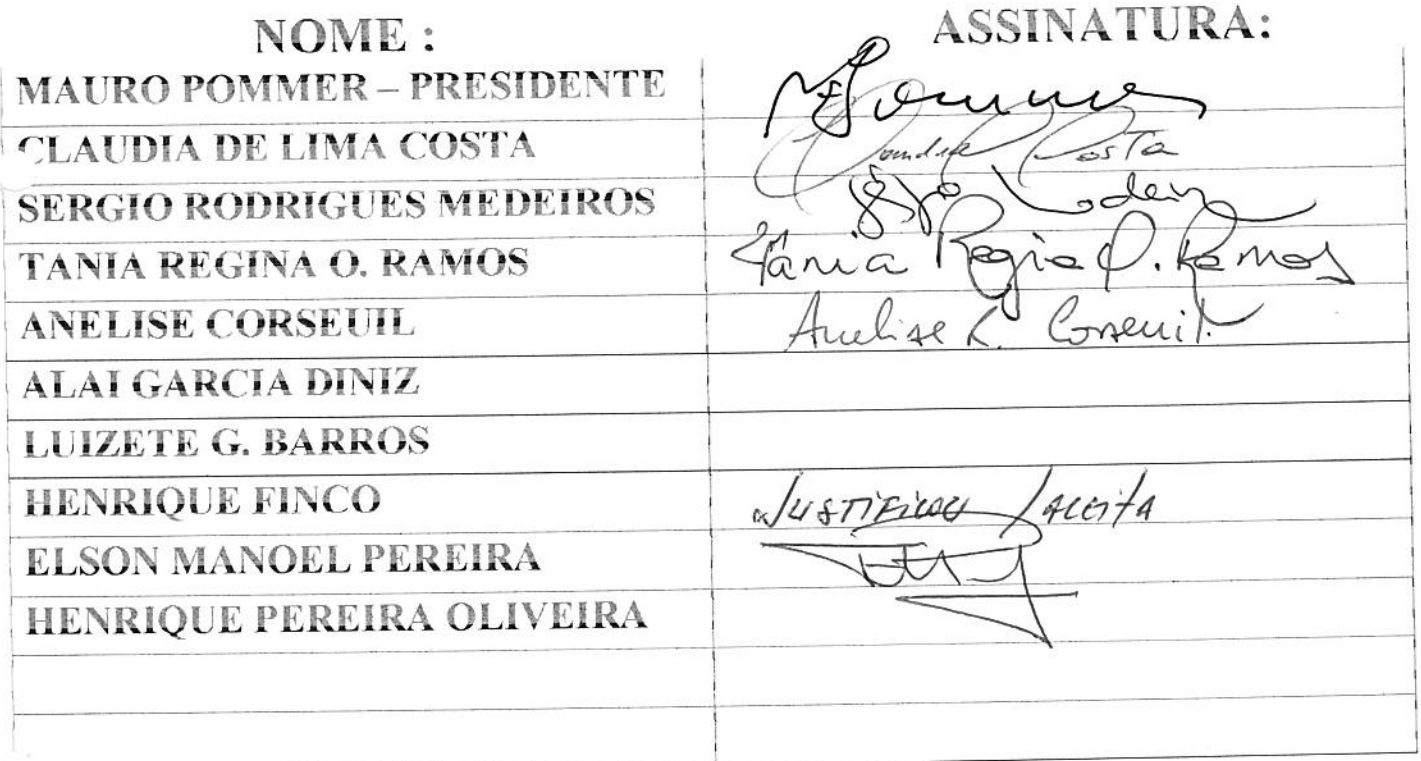 NOME : ASSINATURA:
MAURO POMMER – PRESIDENTE Pommer
CLAUDIA DE LIMA COSTA Claudia Costa
SERGIO RODRIGUES MEDEIROS
TANIA REGINA O. RAMOS Tânia Regina O. Ramos
ANELISE CORSEUIL Anelise R. Corseuil
ALAI GARCIA DINIZ
LUIZETE G. BARROS
HENRIQUE FINCO JUSTIFICOU /ACEITA
ELSON MANOEL PEREIRA
HENRIQUE PEREIRA OLIVEIRA